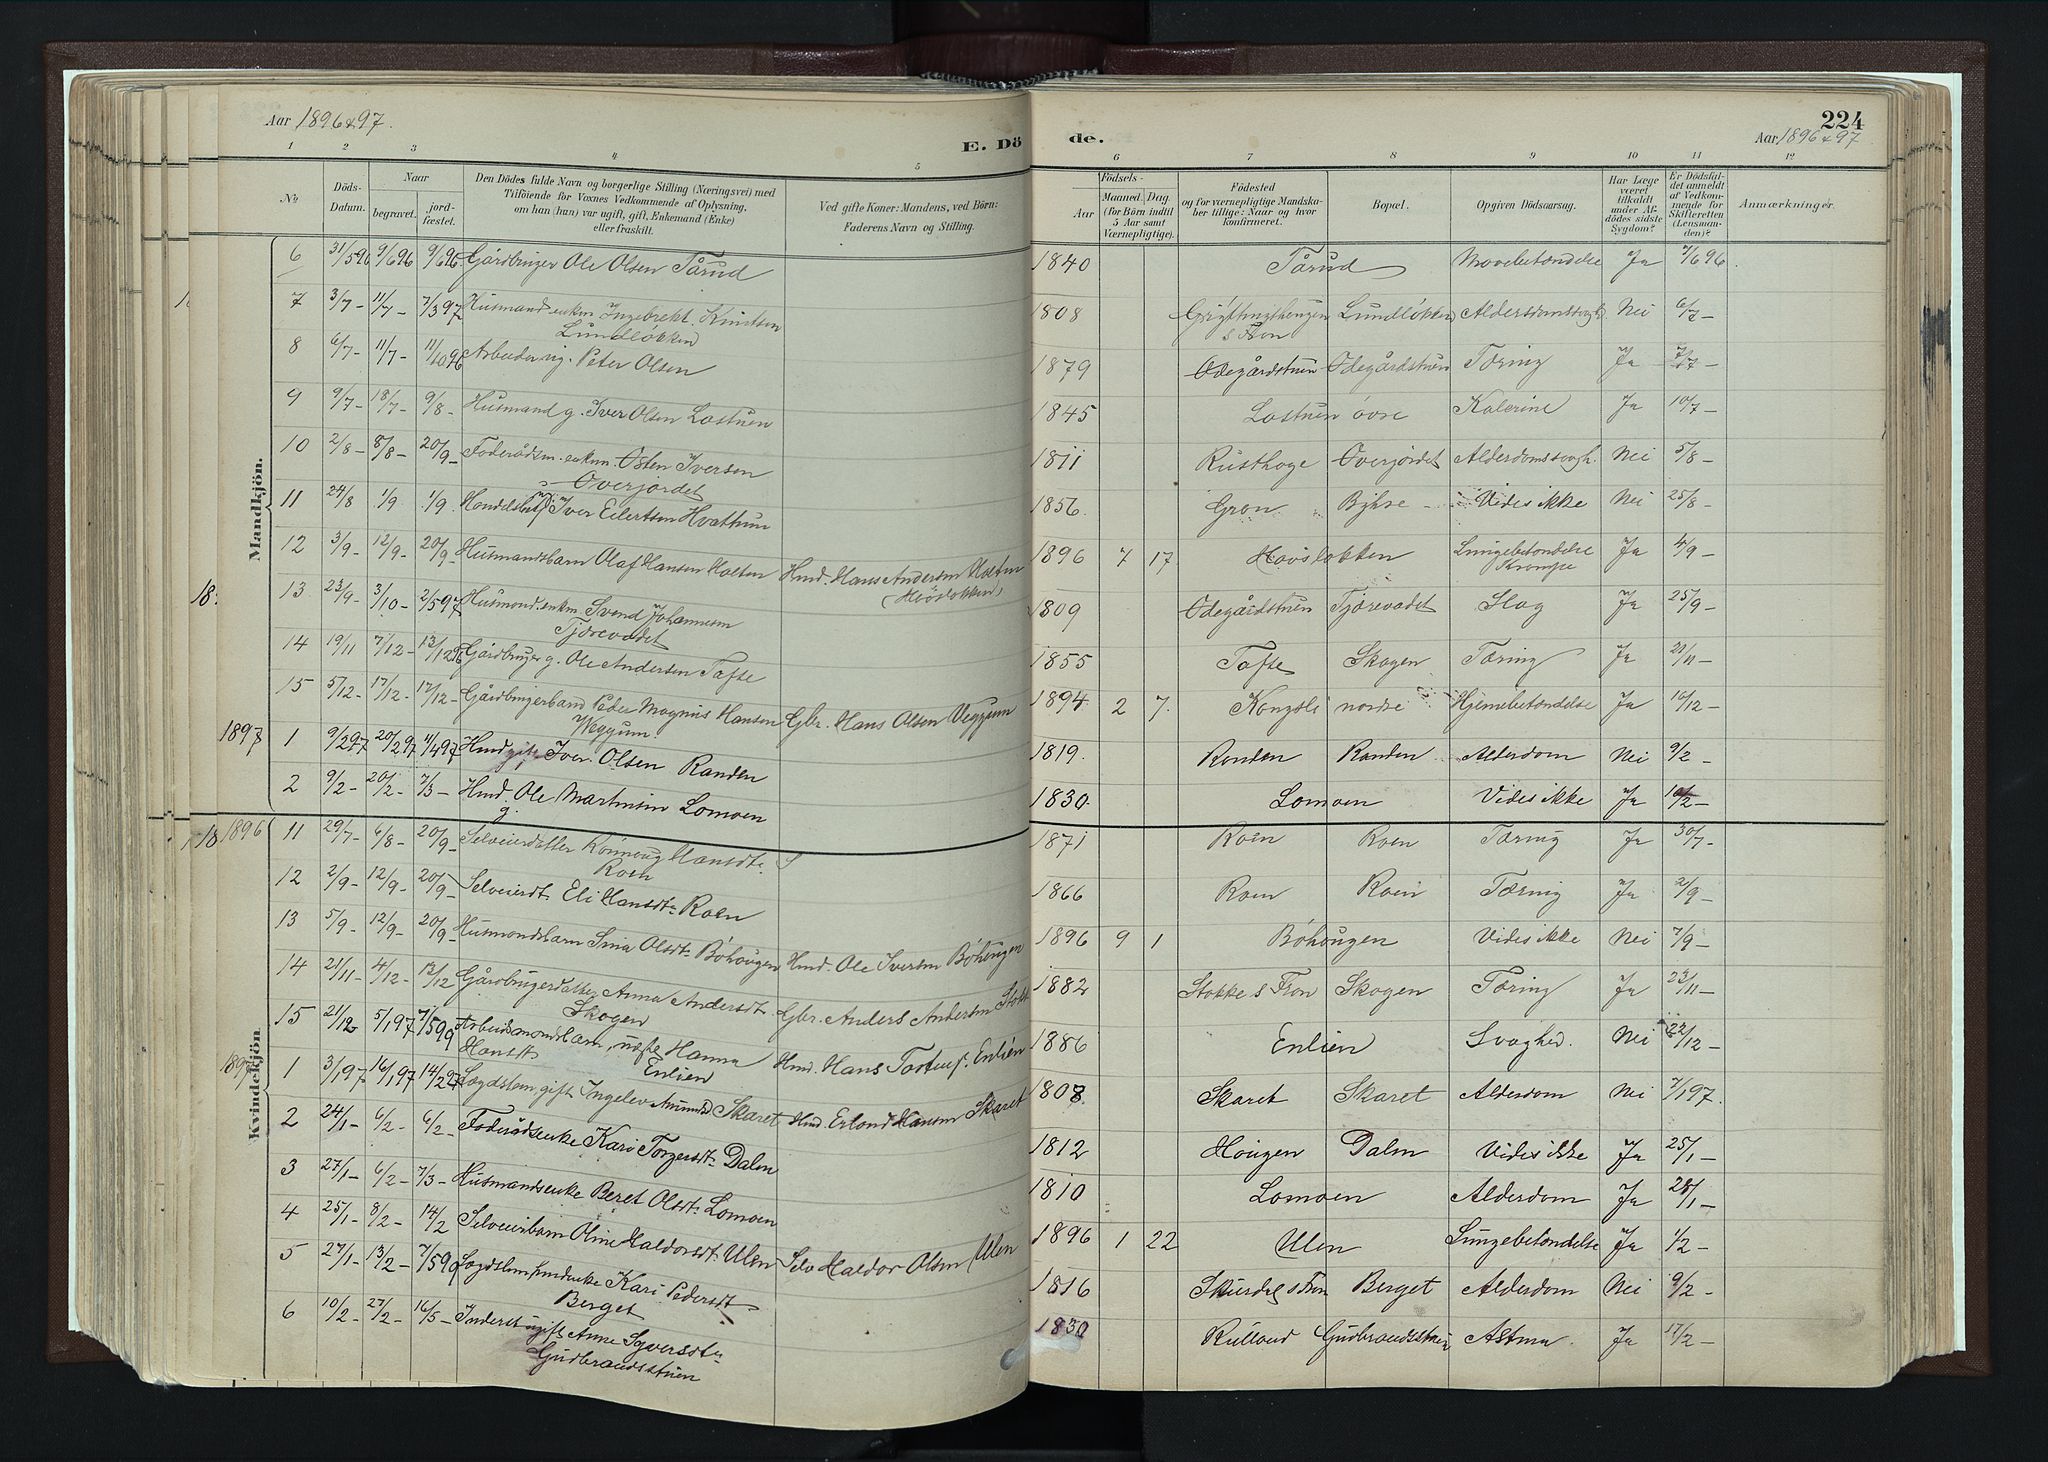 Aar 1896 & 97.
E. Dö
de.
224
Aar 1896 & 97
1 2 3 4 5
6 7 8 9 10 11 12
№
Döds-Datum.
Naar
begravet.
jord-fæstet.
Den Dödes fulde Navn og borgerlige Stilling (Næringsvei) med
Tilföiende for Voxnes Vedkommende af Oplysning,
om han (hun) var ugift, gift, Enkemand (Enke)
eller fraskilt.
Ved gifte Koner: Mandens, ved Börn:
Faderens Navn og Stilling.
Födsels-
Aar
Maaned. Dag.
(for Börn indtil 5 Aar samt Værnepligtige).
Födested
og for værnepligtige Mandska-
ber tillige: Naar og hvor
konfirmeret.
Bopæl.
Opgiven Dödsaarsag.
Har Læge været tilkaldt under Afdödes sidste Sygdom?
Er Dödsfaldet anmeldt af Vedkommende for Skifteretten (Lensmanden)?
Anmærkninger.
Mandkjön.
6 31/5 96 9/6 96 9/6 96 Gårdbruger Ole Olsen Tårud 1840 Tårud Ja 7/6 96.
7 3/7 – 11/7 – 7/3 97 Husmand enkm. Ingebrekt Knutsen Lundløkken 1808 s Fron Lundløkken Nei 6/7 –
8 6/7 – 11/7 – 11/10 96 Arbeider ug. Peter Olsen 1879 Ødegårdstuen Ødegårdstuen Tæring Ja 7/7 –
9 9/7 – 18/7 – 9/8 – Husmand g. Iver Olsen Lostuen 1845 Lostuen øvre Ja 10/7 –
10 2/8 – 8/8 – 20/9 – Foderådsm. enkm. Østen Iversen Øverjordet 1811 Rusthage Øverjordet Alderdomssvagh. Nei 5/8 –
11 24/8 1/9 1/9. Iver Eilertsen Hvattum 1856. Gron Vides ikke Nei 25/8 –
12 3/9 – 12/9 – 20/9 – Husmandsbarn Olaf Hansen Holten Hmd. Hans Andersen Holten 1896 7 17 Lungebetændelse Krampe Ja 4/9 –
13 23/9 – 3/10 – 2/5 97 Husmand enkm Svend Johannesen Tjærevadet 1809 Ødegårdstuen Tjærevadet Slag Ja 25/9 –
14 19/11 7/12 – 13/12 96 Gårdbruger g. Ole Andersen Tofte 1855 Tofte Skogen Tæring Ja 21/11 –
15 5/12 – 17/12 – 17/12 – Gårdbrugerbarn Peder Magnus Hansen Veggum Gbr. Hans Olsen Veggum 1894 2 7. Kongsli nordre Hjernebetændelse Ja 16/12 –
1897 1 9/2 97 20/2 97 11/4 97 Hmd gift Iver Olsen Randen 1819. Randen Randen Alderdom Nei 9/2 –
2 9/2 – 20/2 – 7/3 – Hmd. g. Ole Martinsen Lomoen 1830. Lomoen Vides ikke Ja 10/2 –
Kvindekjön
1896 11 29/7 – 6/8 – 20/9 – Selveierdatter Rønnoug Hansdt. Roen 1871 Roen Roen Tæring Ja 30/7 –
12 2/9 – 12/9 – 20/9 – Selveierdt. Eli Hansdt. Roen 1866 Roen Roen Tæring Ja 2/9 –
13 5/9 – 12/9 – 20/9 – Husmandsbarn Sina Olsdt. Bøhougen Hmd. Ole Iversen Bøhougen 1896 9 1 Bøhougen Vides ikke Nei 7/9 –
14 21/11 – 4/12 – 13/12 Gårdbrugerdatter Anna Andersdt. Skogen Gbr. Anders Andersen Stokke 1882 Stokke s Fron Skogen Tæring Ja 23/11 –
15 21/12 5/1 97 7/5 99 Arbeidsmandsbarn, Hanna Hansdt Enlien Hmd. Hans Enlien 1886 Enlien Svaghed. Nei 22/12 –
1897 1 3/1 97 16/1 97 14/2 97 Lægdslem, gift Ingelev Amundsd Skaret Hmd. Erland Hansen Skaret 1808. Skaret Skaret Alderdom Nei 7/1 97.
2 24/1 – 6/2 – 6/2 – Foderådsenke Kari Torgersdt. Dalen 1812 Hougen Dalen Vides ikke Ja 25/1 –
3 27/1 – 6/2 – 7/3 – Husmandsenke Beret Olsdt. Lomoen 1810 Lomoen Alderdom Ja 28/1 –
4 25/1 – 8/2 – 14/2 Selveierbarn Oline Haldorsdt. Ulen Selv Haldor Olsen Ulen 1896 1 22 Ulen Lungebetændelse Ja 1/2 –
5 27/1 – 13/2 – 7/5 99 Lægdslem, Kari Pedersdt. Berget 1816 s Fron Berget Alderdom Nei 9/2 –
6 10/2 – 27/2 – 16/5 – Inderst ugift Anne Syversdt. Gudbrandsstuen 1830 Rulland Gudbrandsstuen Astma. Ja 17/2 –